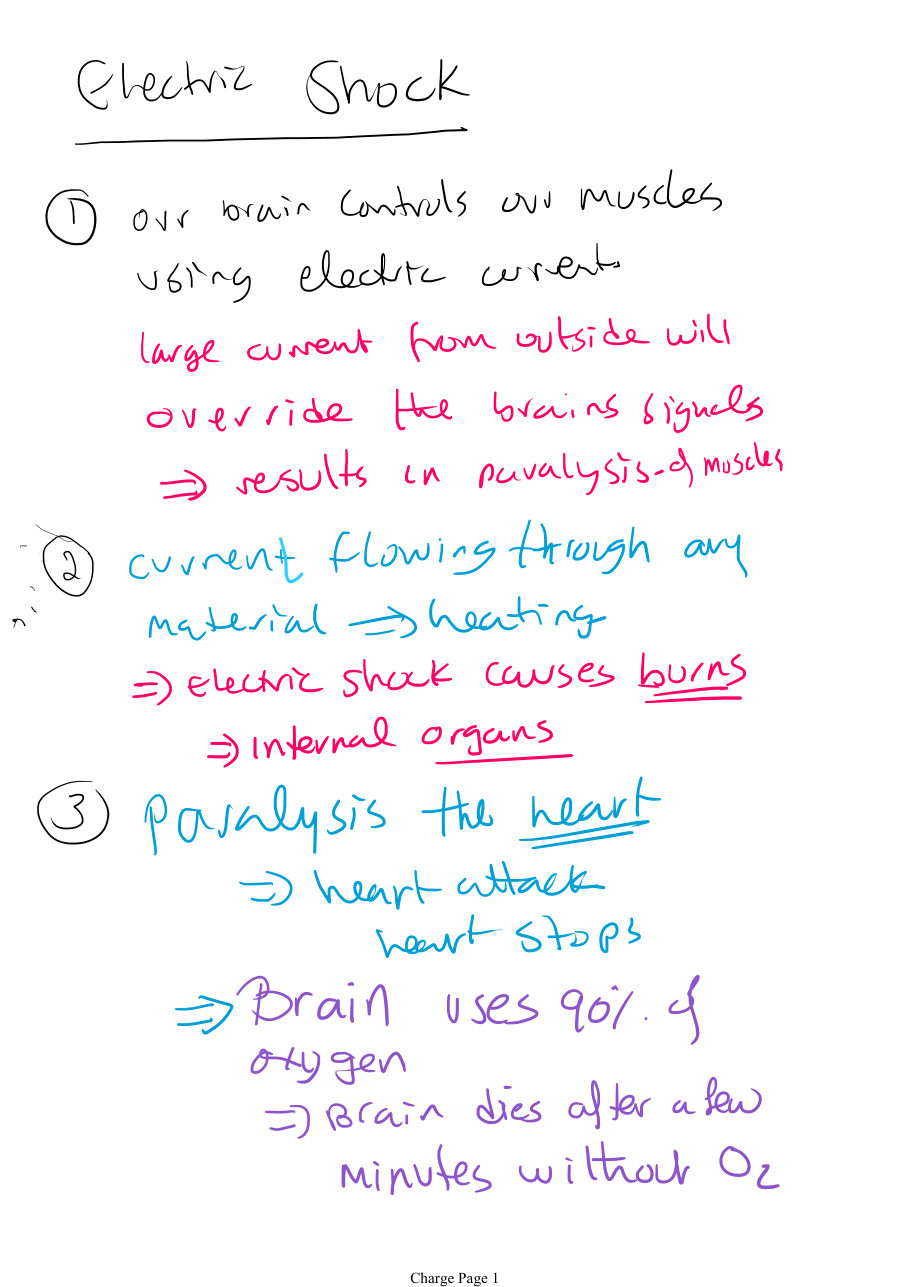 Electric Shock
① our brain controls our muscles
using electric currents
large current from outside will
override the brains signals
⇒ results in paralysis of muscles
② current flowing through any
material ⇒ heating
⇒ Electric shock causes burns
⇒ Internal organs
③ paralysis the heart
⇒ heart attack
heart stops
⇒ Brain uses 90% of
oxygen
⇒ Brain dies after a few
minutes without O₂
Charge Page 1